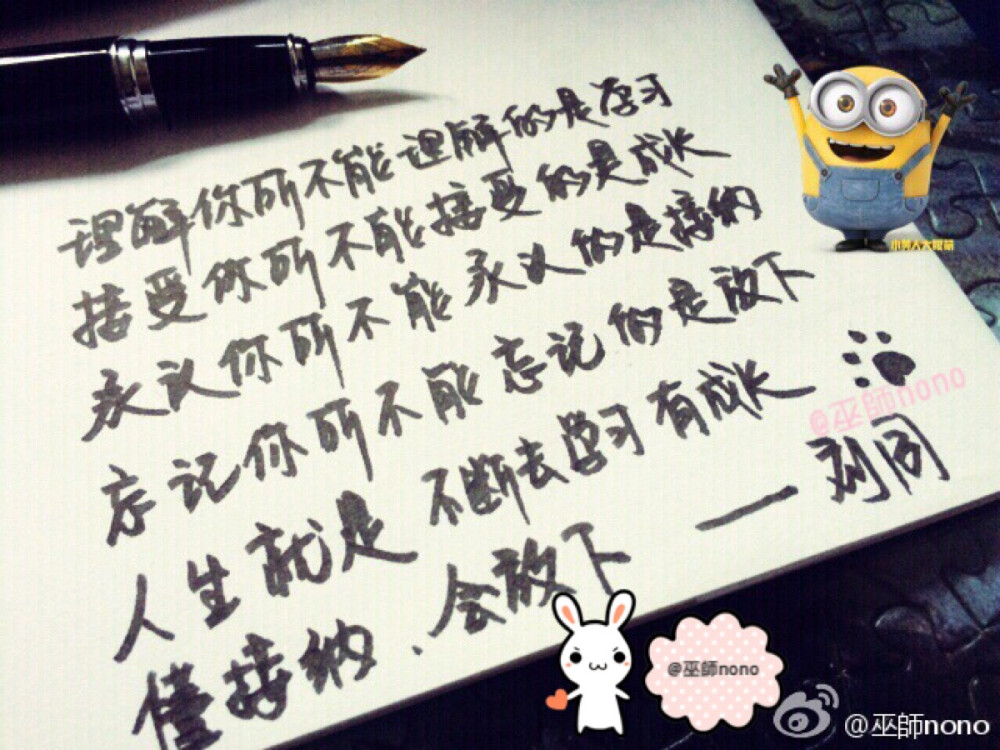 理解你所不能理解的是学习
接受你所不能接受的是成长
承认你所不能承认的是接纳
忘记你所不能忘记的是放下
人生就是不断去学习有成长
懂接纳、会放下 — 刘同
小黄人大眼萌
@巫師nono
@巫師nono
@巫師nono